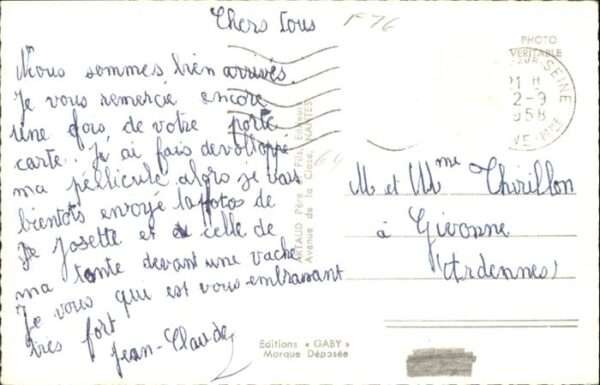 Chers tous
Nous sommes bien arrivés.
Je vous remercie encore
une fois de votre porte
carte. J'ai fais devolloppé
ma péllicule alors je vais
bientots envoyé la fotos de
de Josette et celle de
ma tante devant une vache
Je vous qui est vous embrassant
tres fort
Jean-Claude
1F76
PHOTO
VERITABLE
SEINE
21 H
2-9
1958
ARTAUD Père et Fils, Editeurs
Avenue de la Close, NANTES
M et Mme Thirillon
à Givonne
(Ardennes)
Editions « GABY »
Marque Déposée